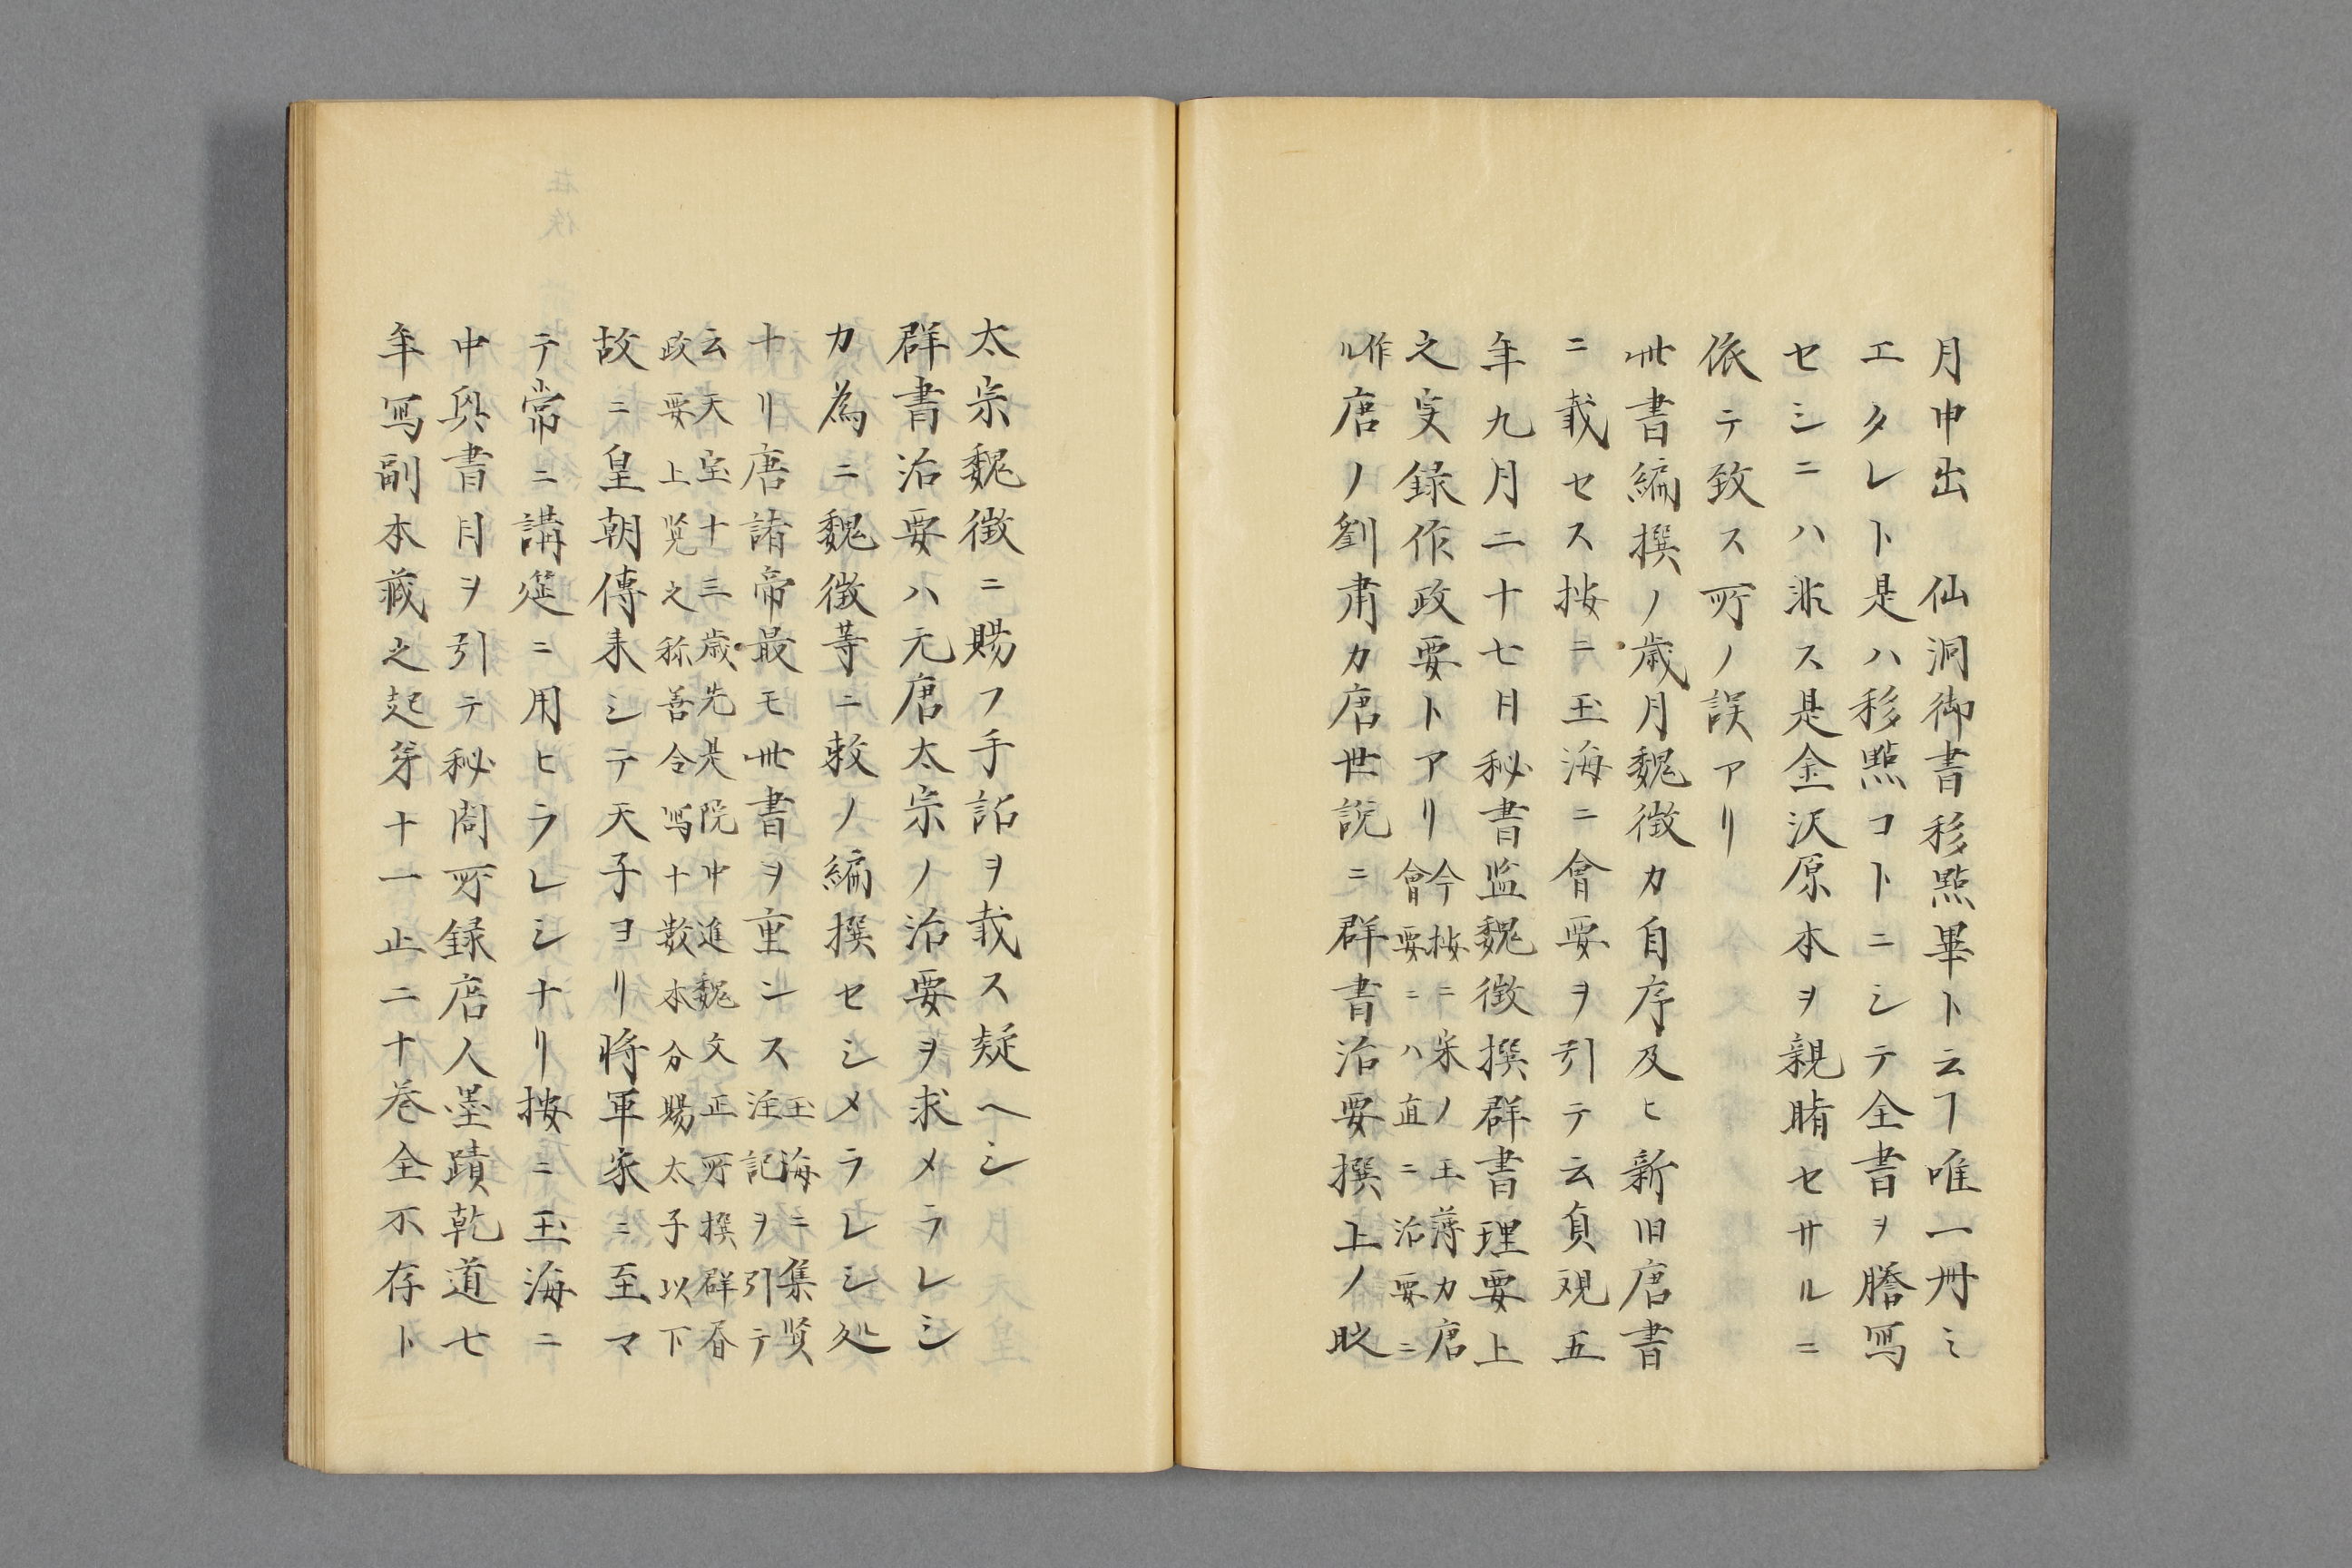 月申出　仙洞御書移點畢ト云ヿ唯一冊ミ
エタレト是ハ移點コトニシテ全書ヲ謄写
セシニハ非ス是金沢原本ヲ親睹セサルニ
依テ致ス所ノ誤アリ
此書編撰ノ歳月魏徴カ自序及ヒ新旧唐書
ニ載セス按ニ玉海ニ會要ヲ引テ云貞観五
年九月二十七日秘書監魏徴撰群書理要上
之実録作政要トアリ
今按ニ宋ノ王溥カ唐
會要ニハ直ニ治要ニ
作
ル
唐ノ劉肅カ唐世説ニ群書治要撰上ノ時
太宗魏徴ニ賜フ手詔ヲ載ス疑ヘシ
群書治要ハ元唐太宗ノ治要ヲ求メラレシ
カ為ニ魏徴等ニ敕ノ編撰セシメラレシ処
ナリ唐諸帝最モ此書ヲ重ンス
玉海ニ集賢
注記ヲ引テ
云天宝十三歳先是院中進魏文正所撰群書
政要上覧之称善令写十数本分賜太子以下
故ニ皇朝傳来シテ天子ヨリ将軍家ニ至マ
テ常ニ講筵ニ用ヒラレシナリ按ニ玉海ニ
中興書目ヲ引テ秘閣所録唐人墨蹟乾道七
年写副本蔵之起第十一止二十巻全不存ト